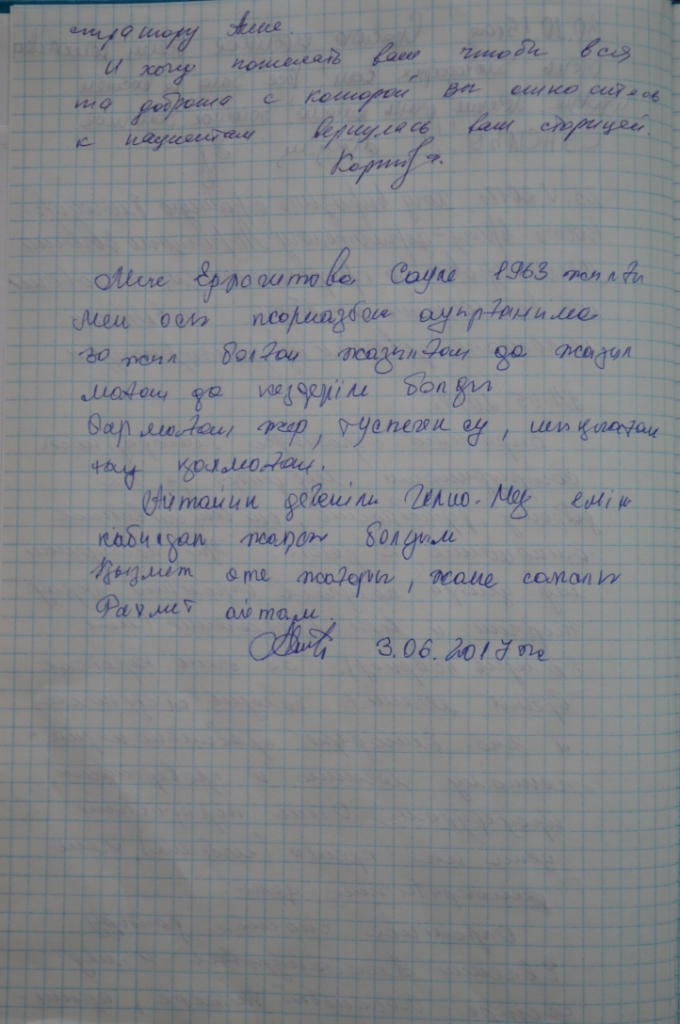 стратору Анне.
И хочу пожелать вам чтобы вся
та доброта с которой вы относитесь
к пациентам вернулась вам сторицей.
Мен Сауле 1963 жылғы
Мен осы псориазбен ауырғаныма
30 жыл болған жазылған да жазыл
маған да кездерім болды
Бармаған жер, түспеген су, шықпаған
тау қалмаған.
Айтайын дегенім Гелио-Мед емін
қабылдап жақсы болдым
Қызмет өте жоғары, және сапалы
Рахмет айтам.
3.06.2017 ж